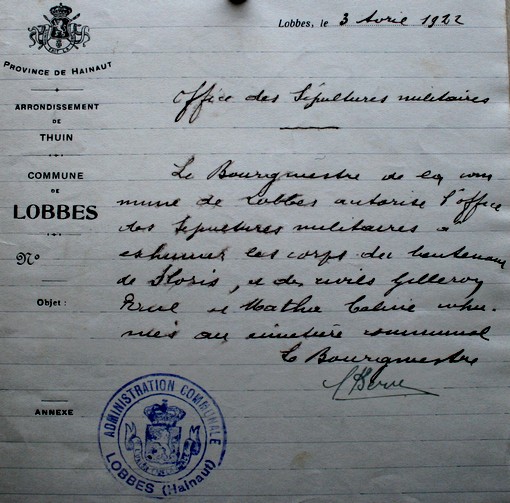 Lobbes, le 3 Avril 1922
PROVINCE DE HAINAUT
ARRONDISSEMENT
DE
THUIN
COMMUNE
DE
LOBBES
No
Objet :
ANNEXE
Office des Sépultures militaires
Le Bourgmestre de la com
mune de Lobbes autorise l'office
des Sépultures militaires à
exhumer les corps du lieutenant
de Floris, et des civils Gilleroy
et Mathu inhu-
més au cimetière communal
Le Bourgmestre
ADMINISTRATION COMMUNALE
LOBBES (Hainaut)